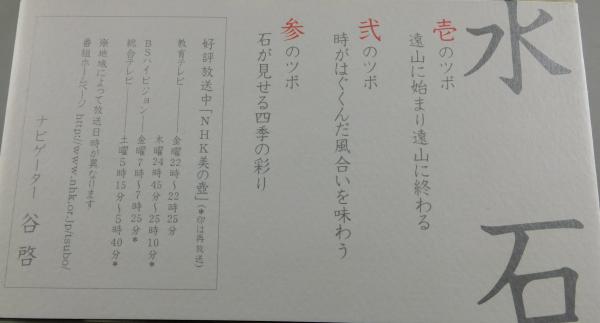 水石
壱のツボ
遠山に始まり遠山に終わる
弐のツボ
時がはぐくんだ風合いを味わう
参のツボ
石が見せる四季の彩り
好評放送中「NHK美の壺」(*印は再放送)
教育テレビ――金曜22時〜22時25分
木曜24時45分〜25時10分*
BSハイビジョン――金曜7時〜7時25分*
総合テレビ――土曜5時15分〜5時40分*
※地域によって放送日時が異なります
番組ホームページ http://www.nhk.or.jp/tsubo/
ナビゲーター 谷啓